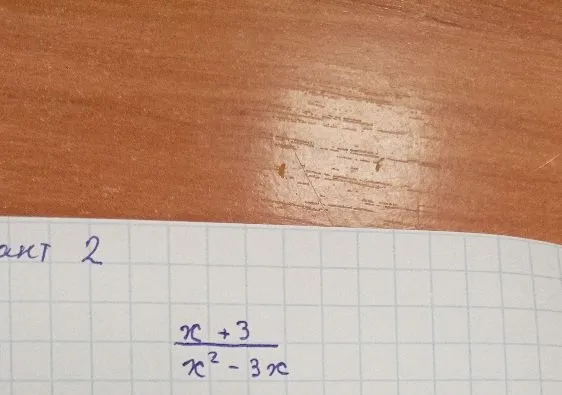 ант 2
x + 3
x² - 3x